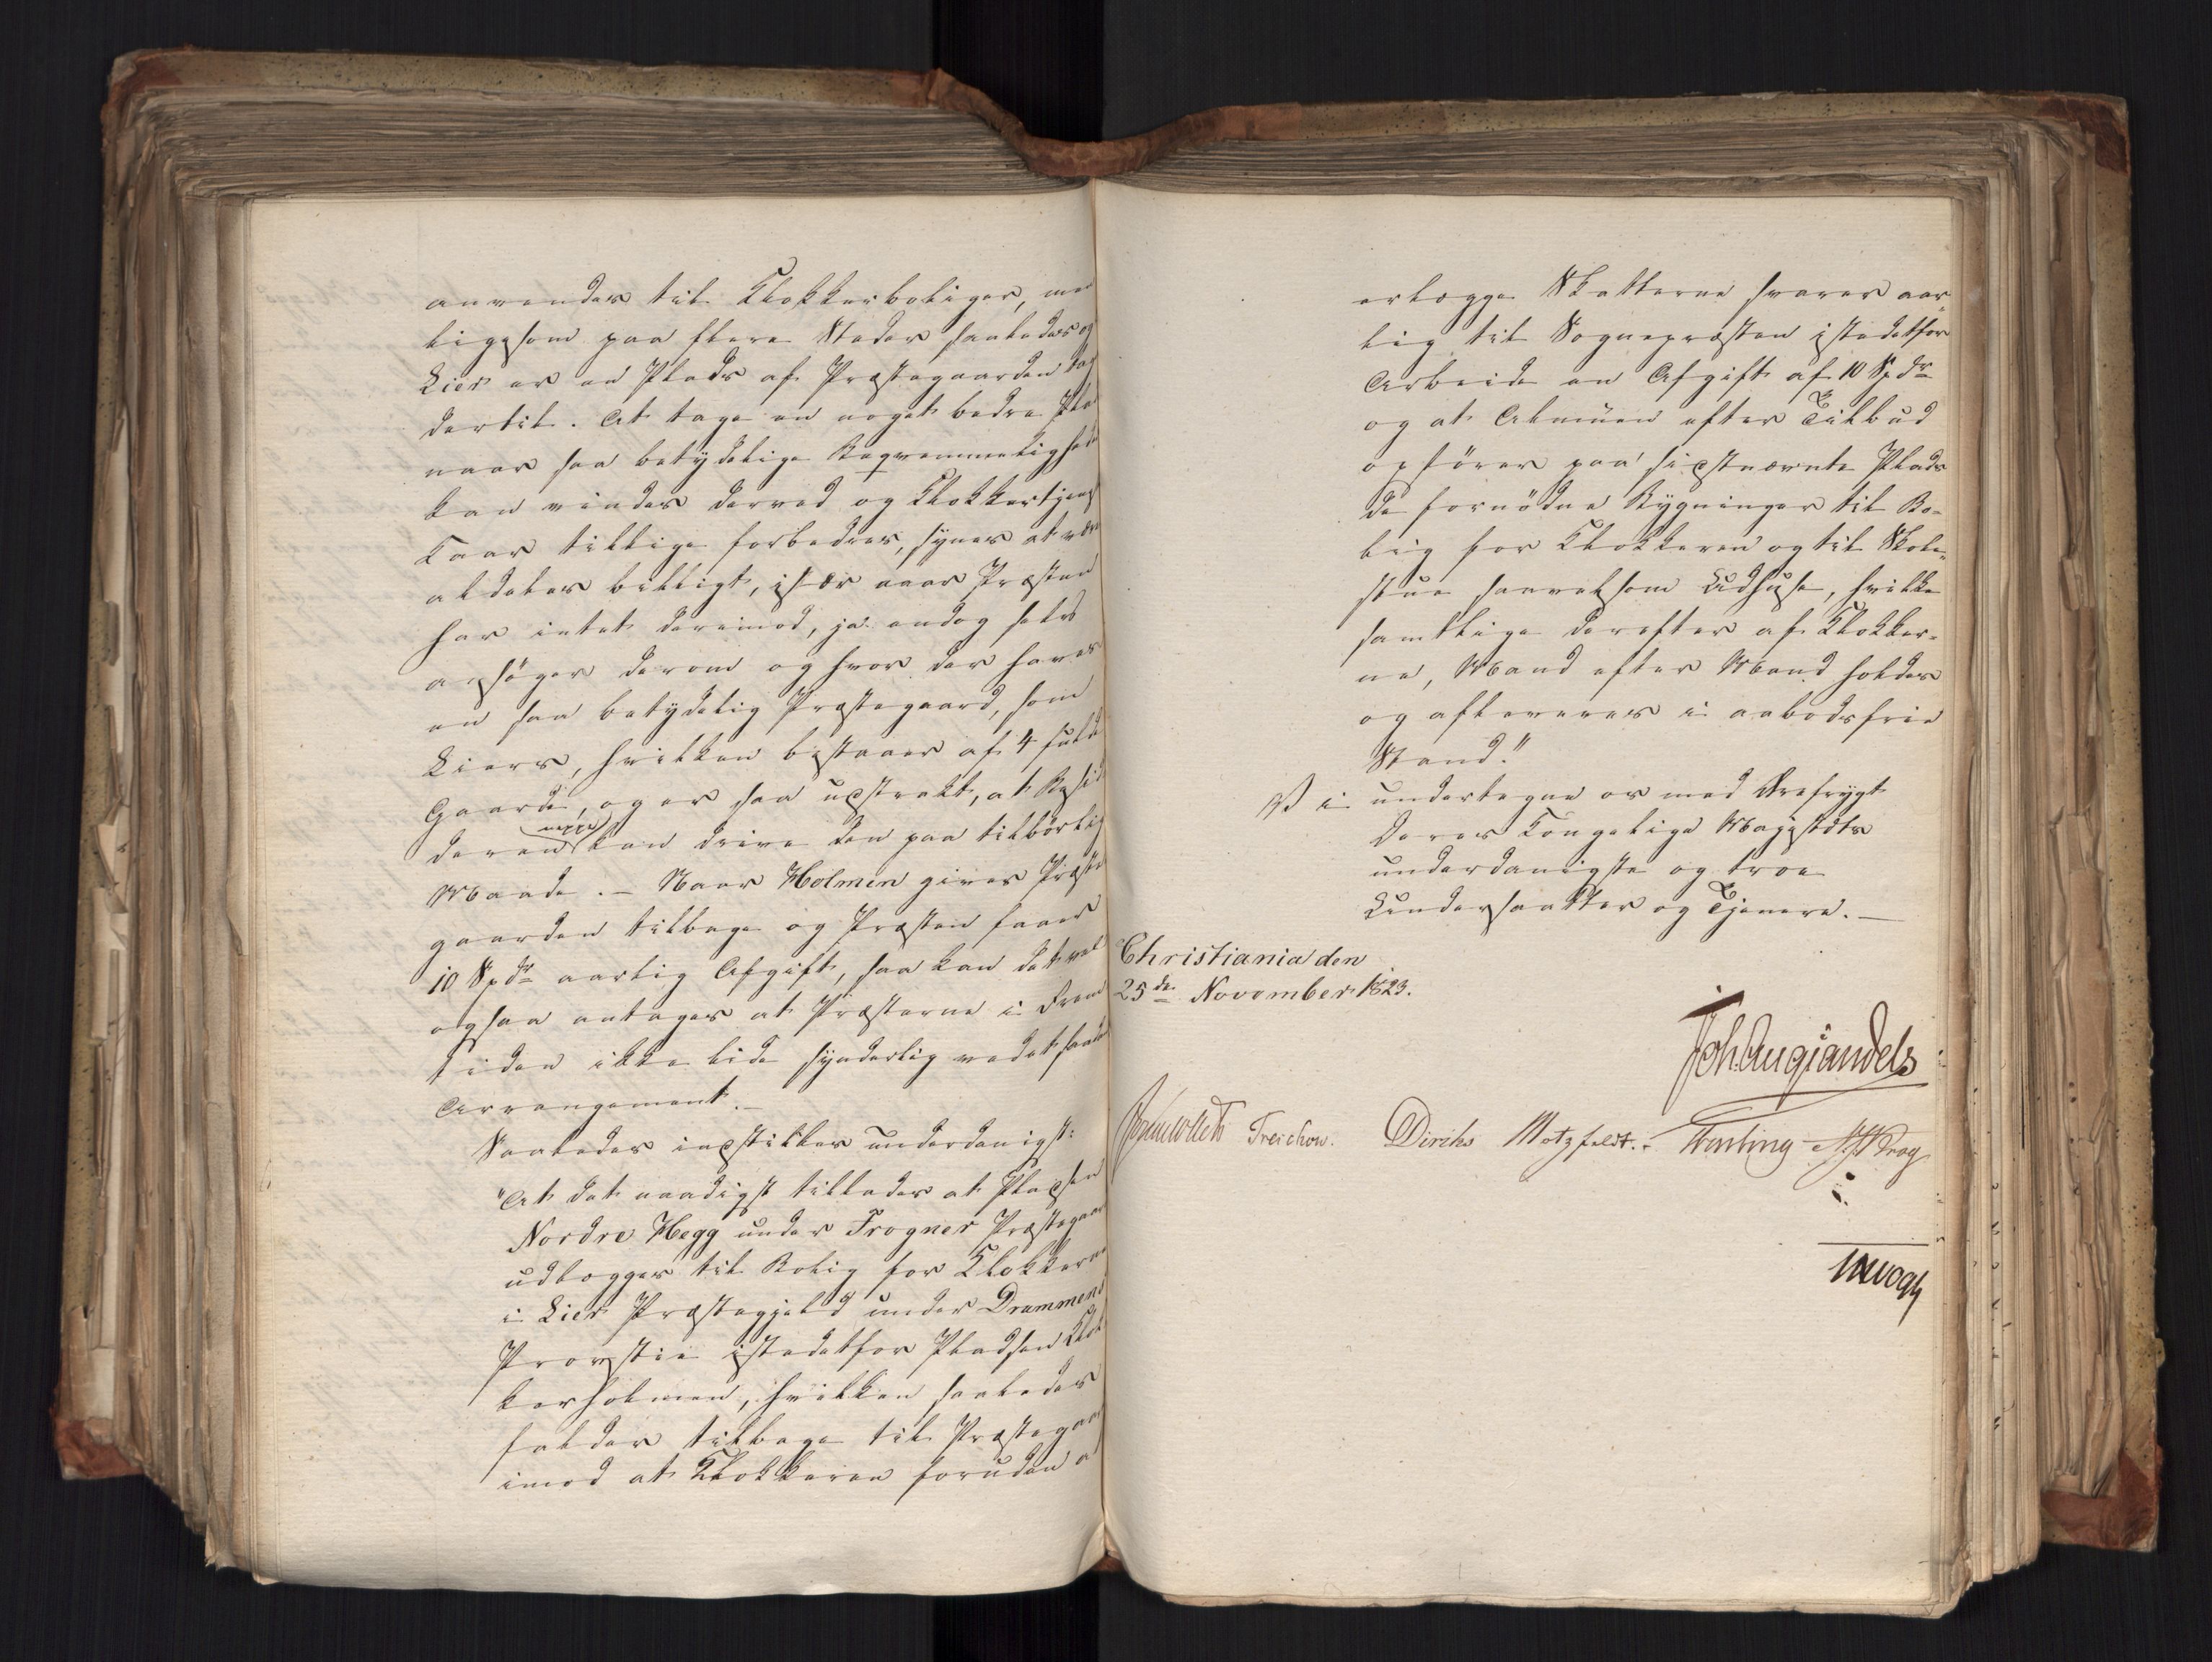 anvendes til Klokkerboliger, men
ligesom paa flere Steder saaledes og
Lier er en Plads af Præstegaarden
dertil. At tage en noget bedre Pla
naar saa betydelige Beqvemmelighed
kan vindes derved og Klokkertjenes
Kaar tillige forbedres, synes at være
aldeles billigt, især naar Præsten
har intet derimod, ja endog selv
ansøger derom og hvor der haves
en saa betydelig Præstegaard, som
Liers, hvilken bestaaer af 4 fulde
Gaarde, og er saa udstrakt, at Besid
deren neppe kan drive den paa tilbørlig
Maade. – Naar Holmen gives Præste
gaarden tilbage og Præsten faaer
10 Spdr aarlig Afgift, saa kan det vel
ogsaa antages at Præsterne i Frem
tiden ikke lide synderlig ved et saadt
Arrangement. –
Saaledes indstilles underdanigst:
"At det naadigst tillades at Pladsen
Nordre Hegg under Frogner Præstegaar
udlægges til Bolig for Klokkeren
i Lier Præstegjeld under Drammens
Provstie istedetfor Pladsen Klok
kerholmen, hvilken saaledes
falder tilbage til Præstegaar
imod at Klokkeren foruden a
erlægge Skatterne svarer aar
lig til Sognepræsten istedetfor
Arbeide en Afgift af 10 Spdr
og at Almuen efter Tilbud
opfører paa sidstnævnte Plads
de fornødne Bygninger til Bo-
lig for Klokkeren og til Skole-
stue saavelsom Udhuse, hvilke
samtlige derefter af Klokker-
ne, Mand efter Mand holdes
og afleveres i aabodsfrie
Stand."
Vi undertegne os med Ærefrygt
Deres Kongelige Majestæts
underdanigste og troe
Undersaatter og Tjenere. –
Christiania den
25de November 1823.
Joh. Aug. Sandels
Jonas Collett Treschow. Diriks Motzfeldt. Fasting N. J. Krog
Vogt